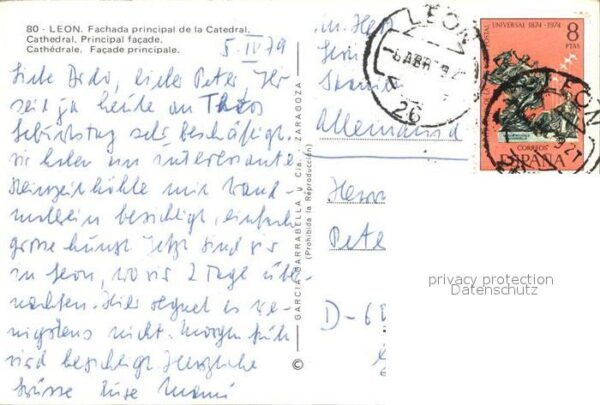 80 - LEON. Fachada principal de la Catedral.
Cathedral. Principal façade.
Cathédrale. Façade principale.
5. IV 79
Liebe Peter Ihr
seid ja heute an Theos
Geburtstag sehr beschäftigt.
Wir haben eine interessante
Steinzeithöhle mit Wand-
malerein besichtigt, einfach
grosse Kunst. Jetzt sind wir
in Leon, wo wir 2 Tage über-
nachten. Hier regnet es we-
nigstens nicht. Morgen früh
wird besichtigt. Herzliche
Grüsse Eure Mami
GARCIA GARRABELLA y Cía. - ZARAGOZA
(Prohibida la Reproducción)
©
Allemania
Herrn
Pete
D-68
LEON
ABR
26
UNIVERSAL 1874-1974
8
PTAS
CORREOS
ESPAÑA
LEON
privacy protection
Datenschutz